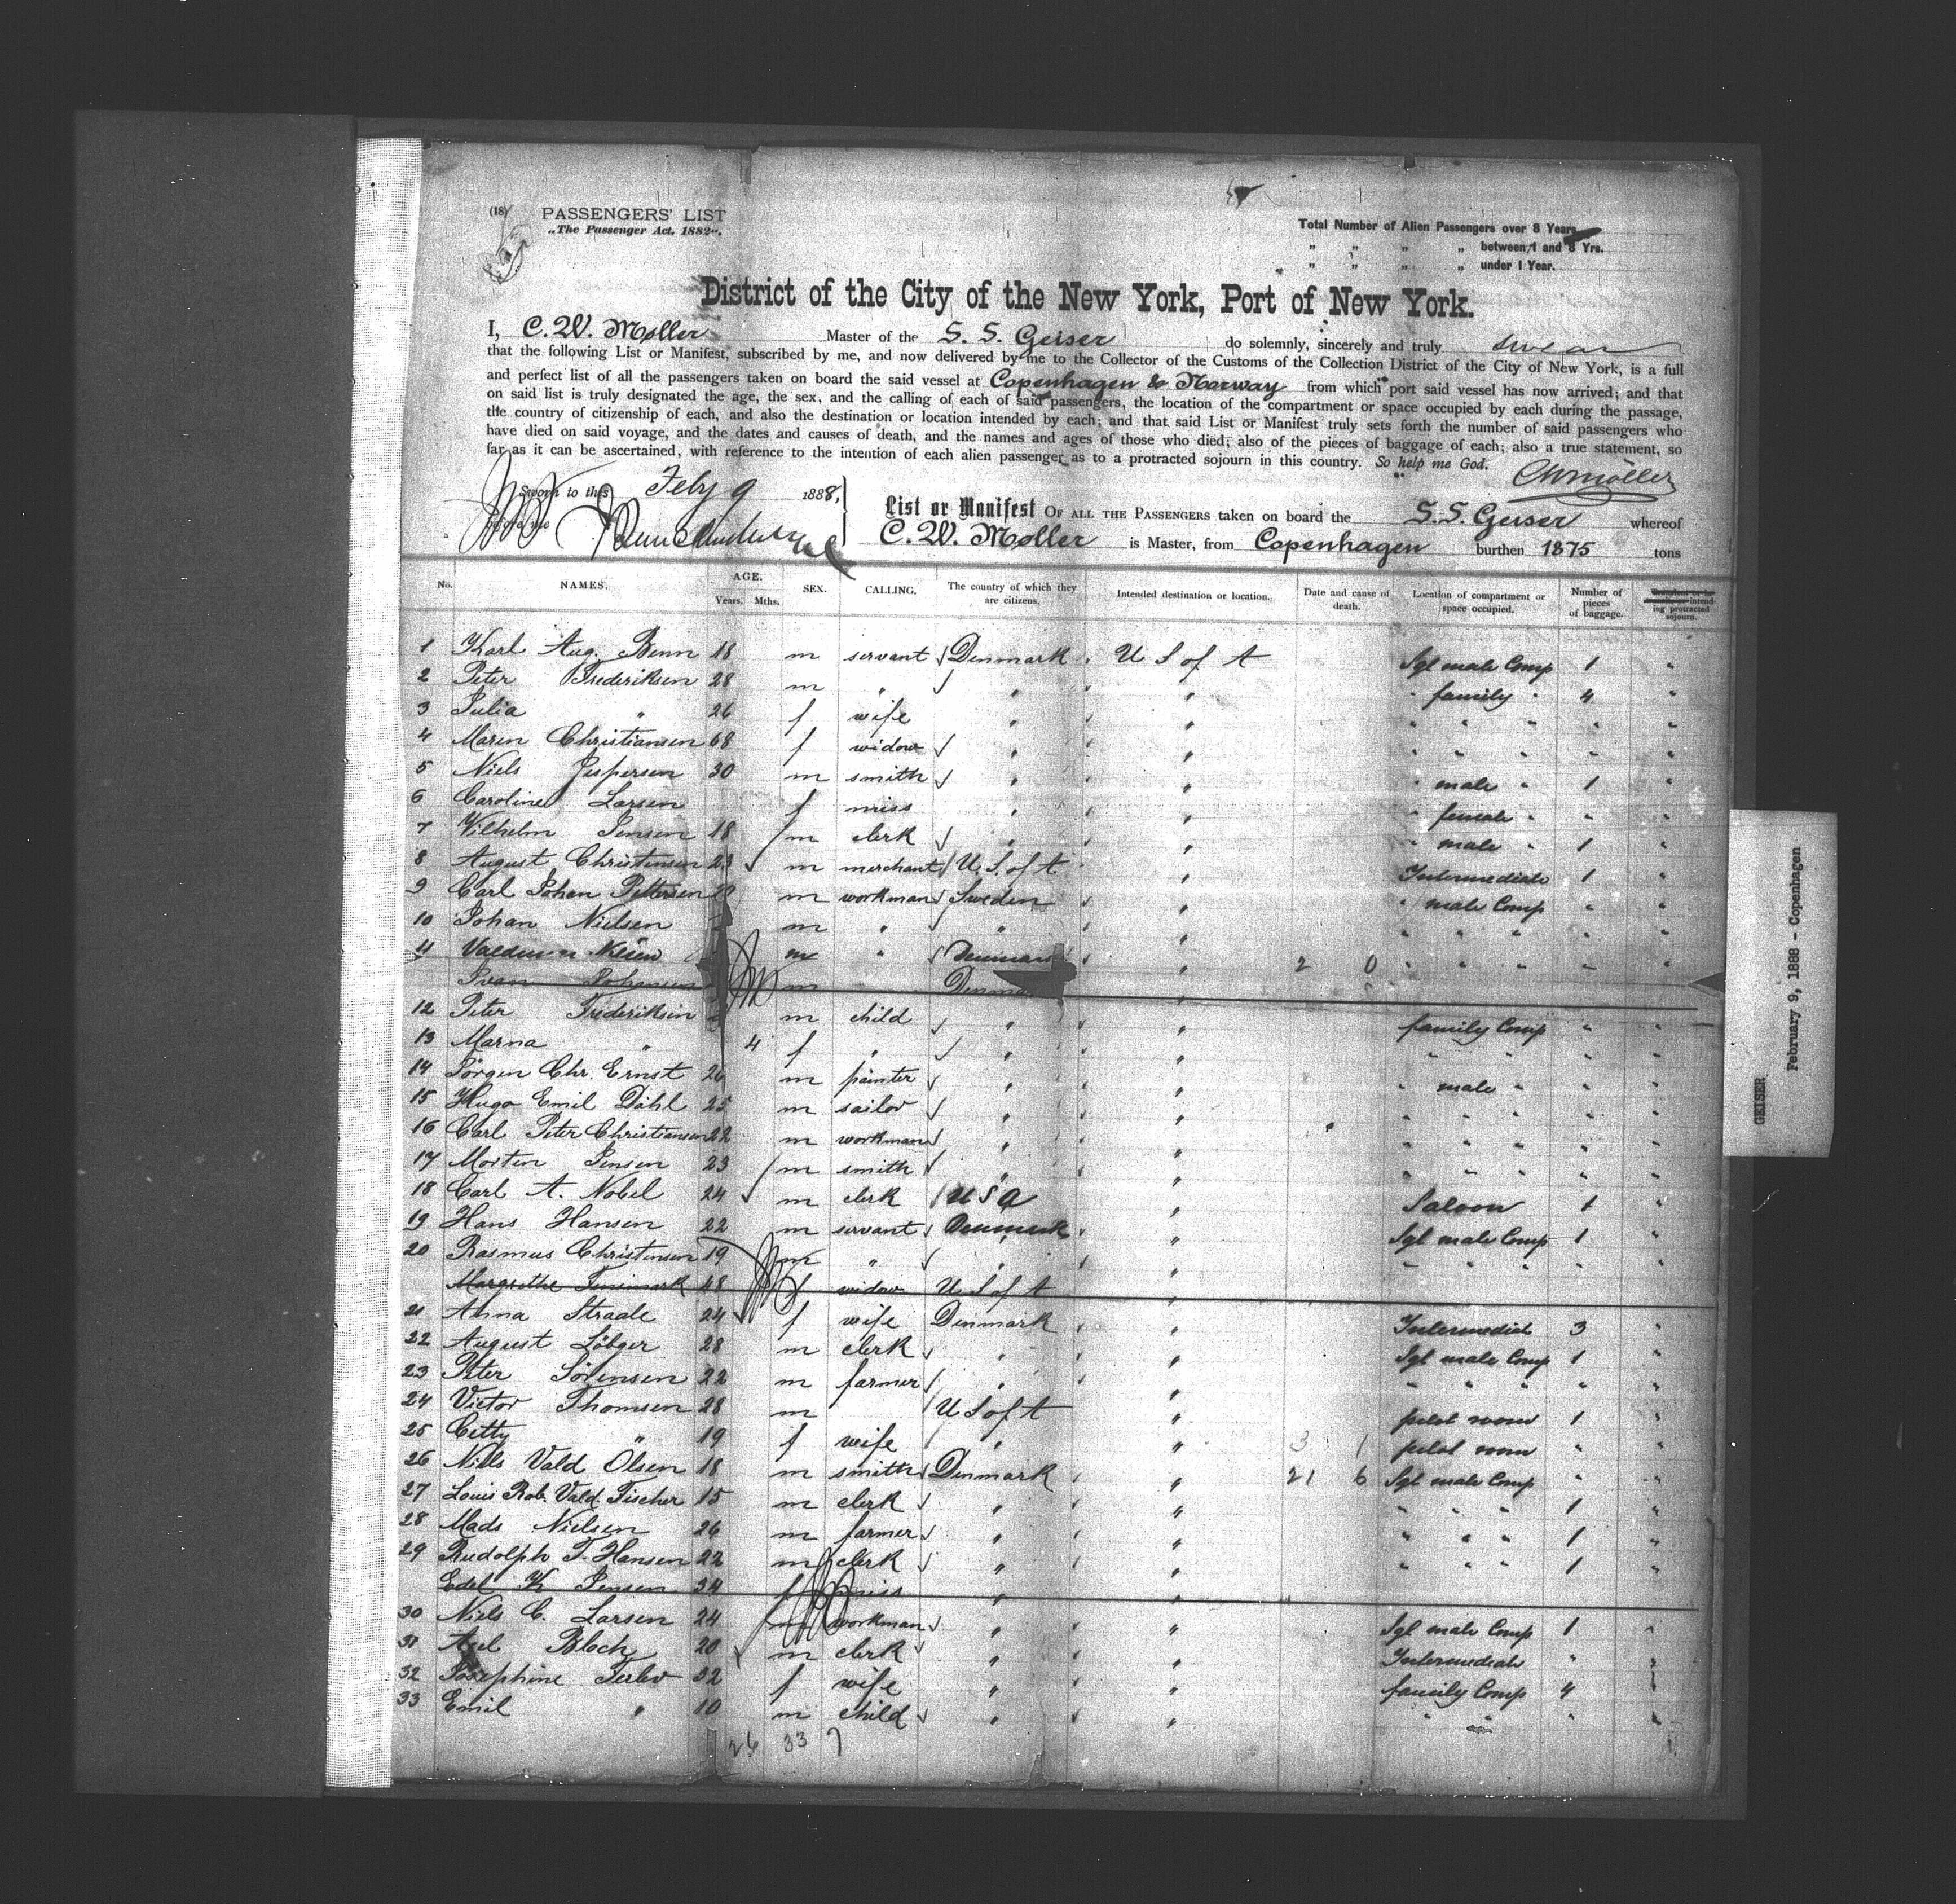 (18)
PASSENGERS' LIST
„The Passenger Act, 1882".
Total Number of Alien Passengers over 8 Years
„ „ „ „ between 1 and 8 Yrs.
„ „ „ „ under 1 Year.
District of the City of the New York, Port of New York.
I, C. W. Møller Master of the S. S. Geiser do solemnly, sincerely and truly swear
that the following List or Manifest, subscribed by me, and now delivered by me to the Collector of the Customs of the Collection District of the City of New York, is a full
and perfect list of all the passengers taken on board the said vessel at Copenhagen & Norway from which port said vessel has now arrived; and that
on said list is truly designated the age, the sex, and the calling of each of said passengers, the location of the compartment or space occupied by each during the passage,
the country of citizenship of each, and also the destination or location intended by each; and that said List or Manifest truly sets forth the number of said passengers who
have died on said voyage, and the dates and causes of death, and the names and ages of those who died; also of the pieces of baggage of each; also a true statement, so
far as it can be ascertained, with reference to the intention of each alien passenger as to a protracted sojourn in this country. So help me God.
CWMöller
Sworn to this Feby 9 1888,
before me
List or Manifest OF ALL THE PASSENGERS taken on board the S.S. Geiser whereof
C. W. Møller is Master, from Copenhagen burthen 1875 tons
No. NAMES. AGE. Years. Mths. SEX. CALLING. The country of which they are citizens. Intended destination or location. Date and cause of death. Location of compartment or space occupied. Number of pieces of baggage. intending protracted sojourn.
1 Karl Aug. Benn 18 m servant Denmark U S of A Sgl male Comp 1 "
2 Peter Frederiksen 28 m " " " " family " 4 "
3 Julia " 26 f wife " " " " " " "
4 Maren Christiansen 68 f widow " " " " " " "
5 Niels Jespersen 30 m smith " " " male " 1 "
6 Caroline Larsen f miss " " " female " " "
7 Vilhelm Jensen 18 m clerk " " " male " 1 "
8 August Christensen 23 m merchant U. S. of A " Intermediate 1 "
9 Carl Johan Pettersen m workman Sweden " " male Comp " "
10 Johan Nielsen m " " " " " " " "
11 m " Denmark " 2 0 " " " " "
Ivan m "
12 Peter Frederiksen m child " " family Comp " "
13 Marna " 4 f " " " " " " "
14 Jörgen Chr Ernst 26 m painter " " " male " " "
15 Hugo Emil Dahl 25 m sailor " " " " " " "
16 Carl Peter Christiansen 22 m workman " " " " " " "
17 Morten Jensen 23 m smith " " " " " " "
18 Carl A. Nobel 24 m clerk U S A " Saloon 1 "
19 Hans Hansen 22 m servant Denmark " Sgl male Comp 1 "
20 Rasmus Christensen 19 m " " " " " " " "
Margrethe 48 f widow U S of A "
21 Anna Straale 24 f wife Denmark " Intermediat 3 "
22 August Löbger 28 m clerk " " Sgl male Comp 1 "
23 Peter Sörensen 22 m farmer " " " " " " "
24 Victor Thomsen 28 m U S of A " pilot room 1 "
25 Citty " 19 f wife " " 3 1 pilot room " "
26 Niels Vald Olsen 18 m smith Denmark " 21 6 Sgl male Comp " "
27 Louis Rob. Vald. Fischer 15 m clerk " " " " " 1 "
28 Mads Nielsen 26 m farmer " " " " " 1 "
29 Rudolph T. Hansen 22 m clerk " " " " " 1 "
Edel K Jensen 34 f miss "
30 Niels C. Larsen 24 m workman " " Sgl male Comp 1 "
31 Axel Bloch 20 m clerk " " Intermediate " "
32 Josephine 32 f wife " " family Comp 4 "
33 Emil " 10 m child " " " " " "
26 33 7
GEISER
February 9, 1888 - Copenhagen